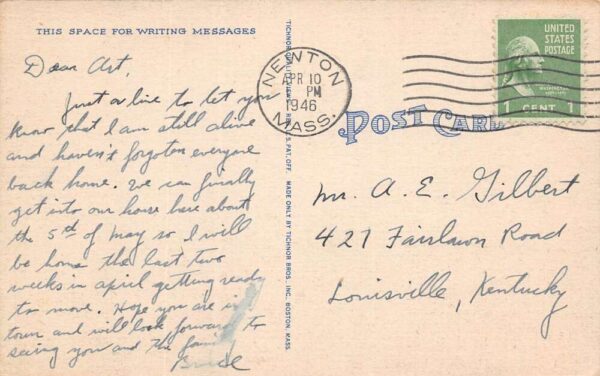 THIS SPACE FOR WRITING MESSAGES
Dear Art,
Just a line to let you
know that I am still alive
and haven't forgoten everyone
back home. We can finally
get into our house here about
the 5th of May so I will
be home the last two
weeks in april getting ready
to move. Hope you are in
town and will look forward to
seeing you and the family
TICHNOR QUALITY VIEWS REG. U.S. PAT. OFF. MADE ONLY BY TICHNOR BROS. INC. BOSTON, MASS.
NEWTON
APR 10
PM
1946
MASS.
UNITED
STATES
POSTAGE
WASHINGTON
1 CENT 1
POST CARD
Mr. A. E. Gilbert
427 Fairlawn Road
Louisville, Kentucky